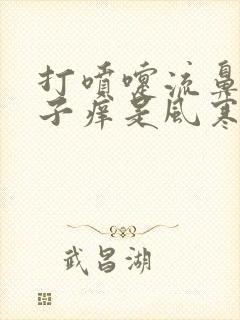 打喷嚏流鼻
子痒是风寒
武昌湖